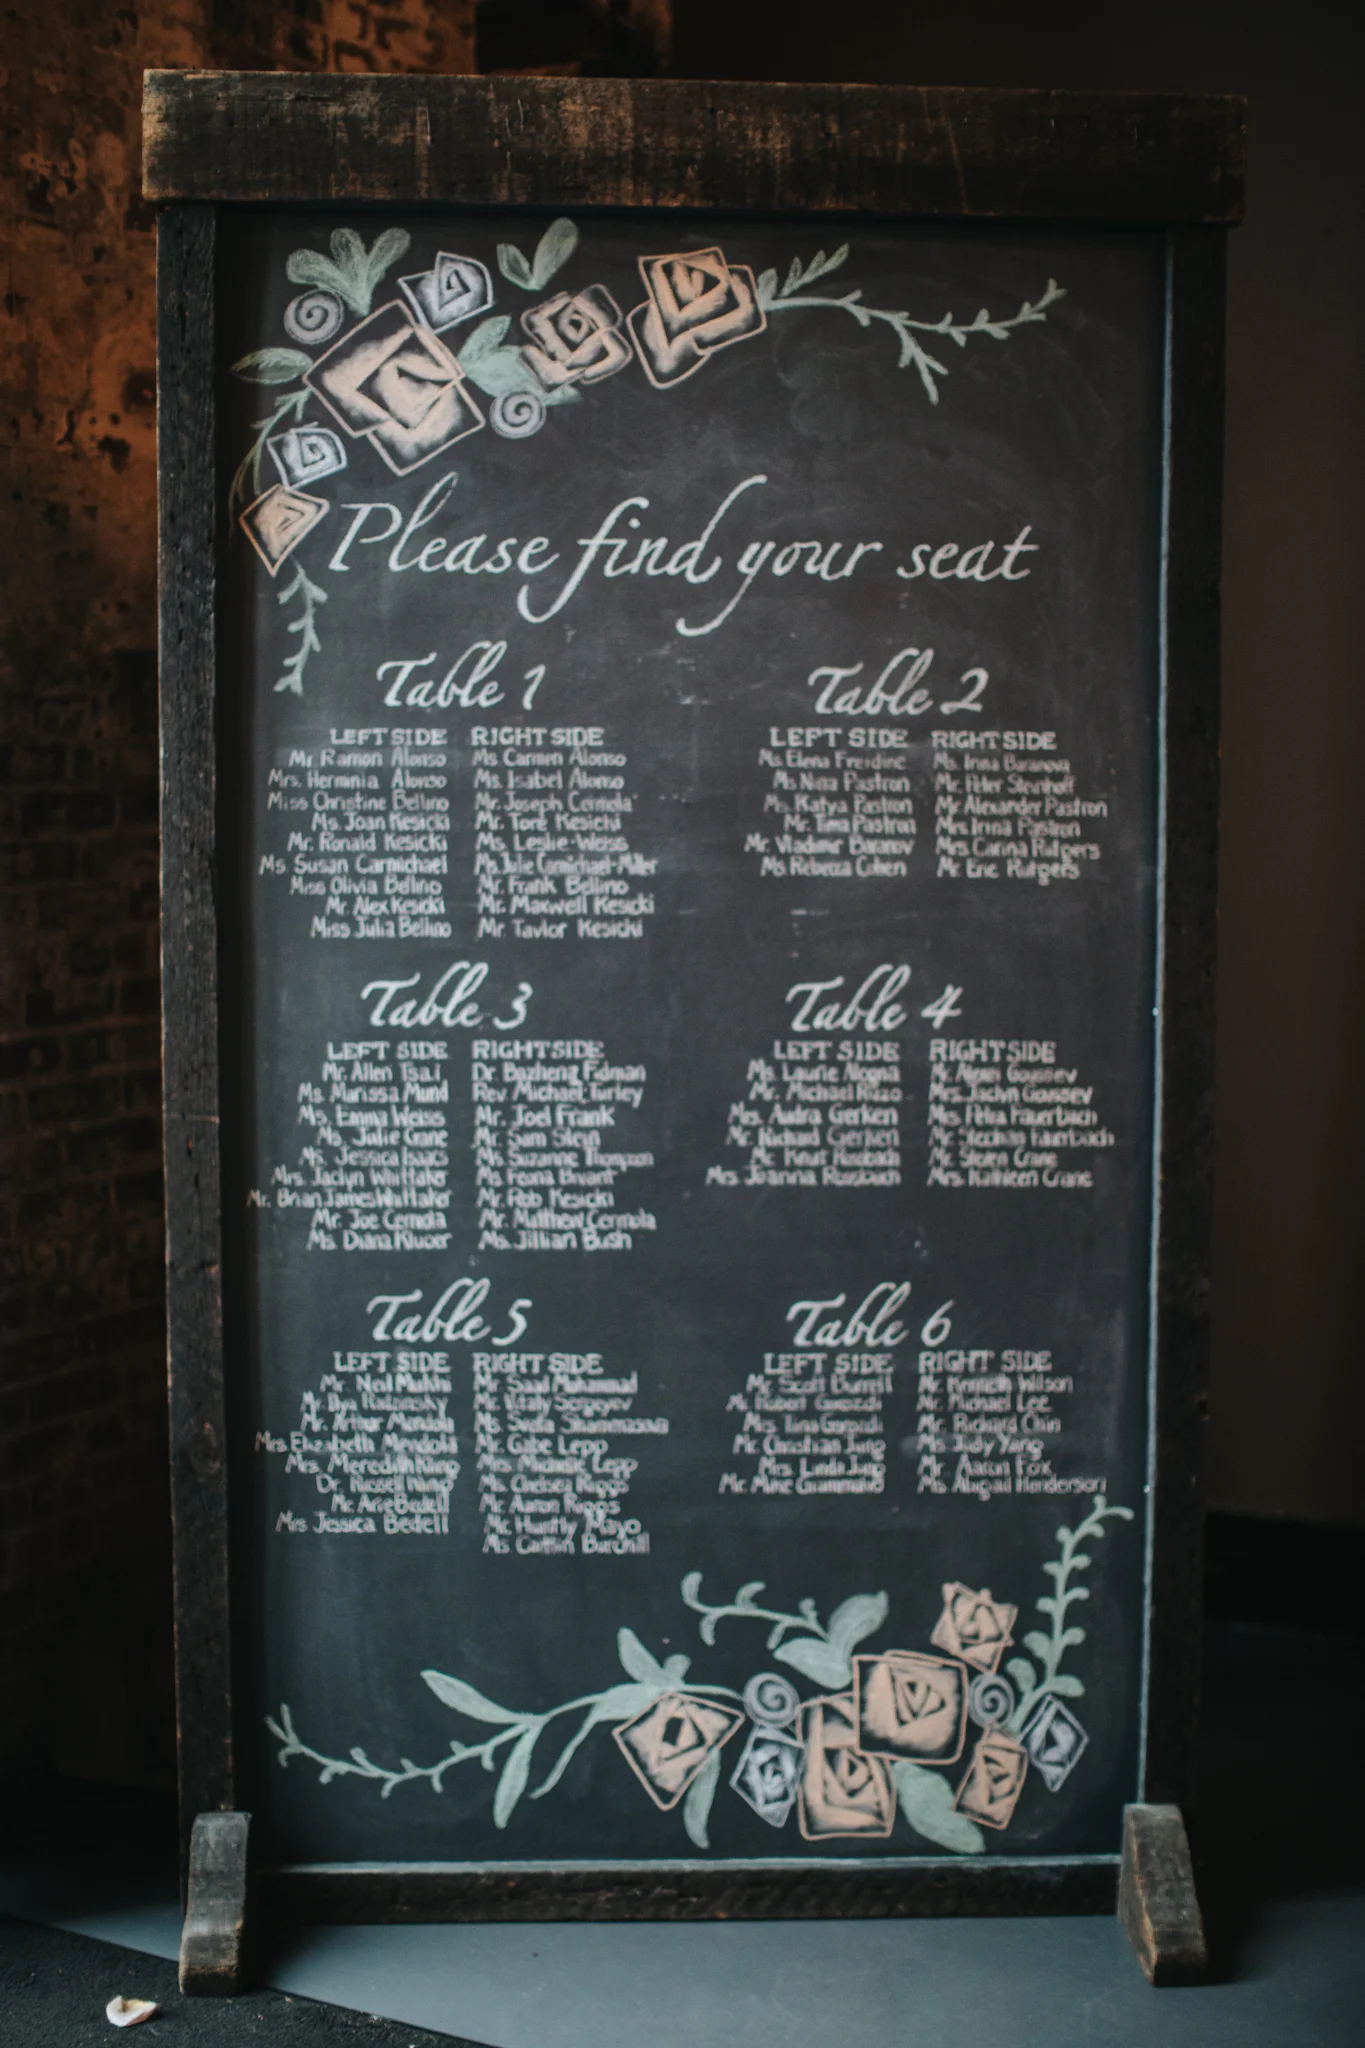 Please find your seat
Table 1
LEFT SIDE
Mr. Ramon Alonso
Mrs. Herminia Alonso
Miss Christine Bellino
Ms. Joan Kesicki
Mr. Ronald Kesicki
Ms. Susan Carmichael
Miss Olivia Bellino
Mr. Alex Kesicki
Miss Julia Bellino
RIGHT SIDE
Ms. Carmen Alonso
Ms. Isabel Alonso
Mr. Joseph Cermola
Mr. Tore Kesicki
Ms. Leslie-Weiss
Ms. Julie Carmichael-Miller
Mr. Frank Bellino
Mr. Maxwell Kesicki
Mr. Taylor Kesicki
Table 2
LEFT SIDE
Ms. Elena
Ms. Nina Pastron
Ms. Katya Pastron
Mr. Tima Pastron
Mr. Vladimir Baranov
Ms. Rebecca Cohen
RIGHT SIDE
Ms. Irina Baranova
Mr. Peter Steinhoff
Mr. Alexander Pastron
Mrs. Irina Pastron
Mrs. Carina Rutgers
Mr. Eric Rutgers
Table 3
LEFT SIDE
Mr. Allen Tsai
Ms. Marissa Mund
Ms. Emma Weiss
Ms. Julie Crane
Ms. Jessica Isaacs
Mrs. Jaclyn Whittaker
Mr. Brian James Whittaker
Mr. Joe Cermola
Ms. Diana Kluger
RIGHT SIDE
Dr. Bozheng Fidman
Rev. Michael Turley
Mr. Joel Frank
Mr. Sam Stein
Ms. Suzanne Thompson
Ms. Feona Bryant
Mr. Rob Kesicki
Mr. Matthew Cermola
Ms. Jillian Bush
Table 4
LEFT SIDE
Ms. Laurie Alogna
Mr. Michael Rizzo
Mrs. Audra Gerken
Mr. Richard Gerken
Mr. Knut Rossbach
Mrs. Joanna Rossbach
RIGHT SIDE
Mr. Gousev
Mrs. Jaclyn Gousev
Mrs. Petra Fauerbach
Mr. Stephan Fauerbach
Mr. Steven Crane
Mrs. Kathleen Crane
Table 5
LEFT SIDE
Mr. Neil Mukhi
Mr. Ilya Radzinsky
Mr. Arthur Mendola
Mrs. Elizabeth Mendola
Mrs. Meredith Ning
Dr. Russell Ning
Mr. Arie Bedell
Mrs. Jessica Bedell
RIGHT SIDE
Mr. Saad Muhammad
Mr. Vitaly Sergeyev
Ms.
Mr. Gabe Lepp
Mrs. Michelle Lepp
Ms. Chelsea Riggs
Mr. Aaron Riggs
Mr. Huntly Mayo
Ms. Caitlin Burchill
Table 6
LEFT SIDE
Mr. Scott Durrell
Mr. Robert
Mrs. Tina
Mr. Christian Jung
Mrs. Linda Jung
Mr. Mike Giammarino
RIGHT SIDE
Mr. Kenneth Wilson
Mr. Michael Lee
Mr. Richard Chin
Ms. Judy Yang
Mr. Aaron Fox
Ms. Abigail Henderson